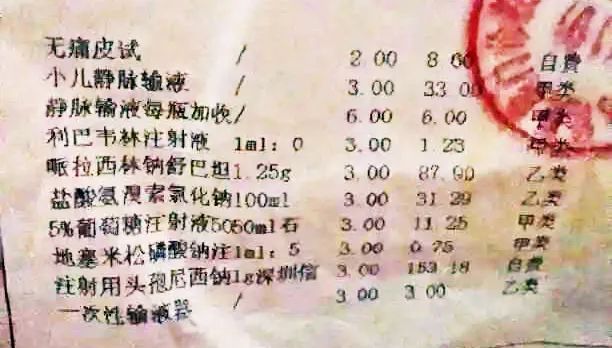 无痛皮试 / 2.00 8.00 自费
小儿静脉输液 / 3.00 33.00 甲类
静脉输液每瓶加收/ 6.00 6.00 甲类
利巴韦林注射液 1ml:0 3.00 1.23 甲类
哌拉西林钠舒巴坦1.25g 3.00 87.90 乙类
盐酸氨溴索氯化钠100ml 3.00 31.29 乙类
5%葡萄糖注射液5050ml石 3.00 11.25 甲类
地塞米松磷酸钠注1ml:5 3.00 0.75 甲类
注射用头孢尼西钠1g深圳信 3.00 153.18 自费
一次性输液器 / 3.00 3.00 乙类